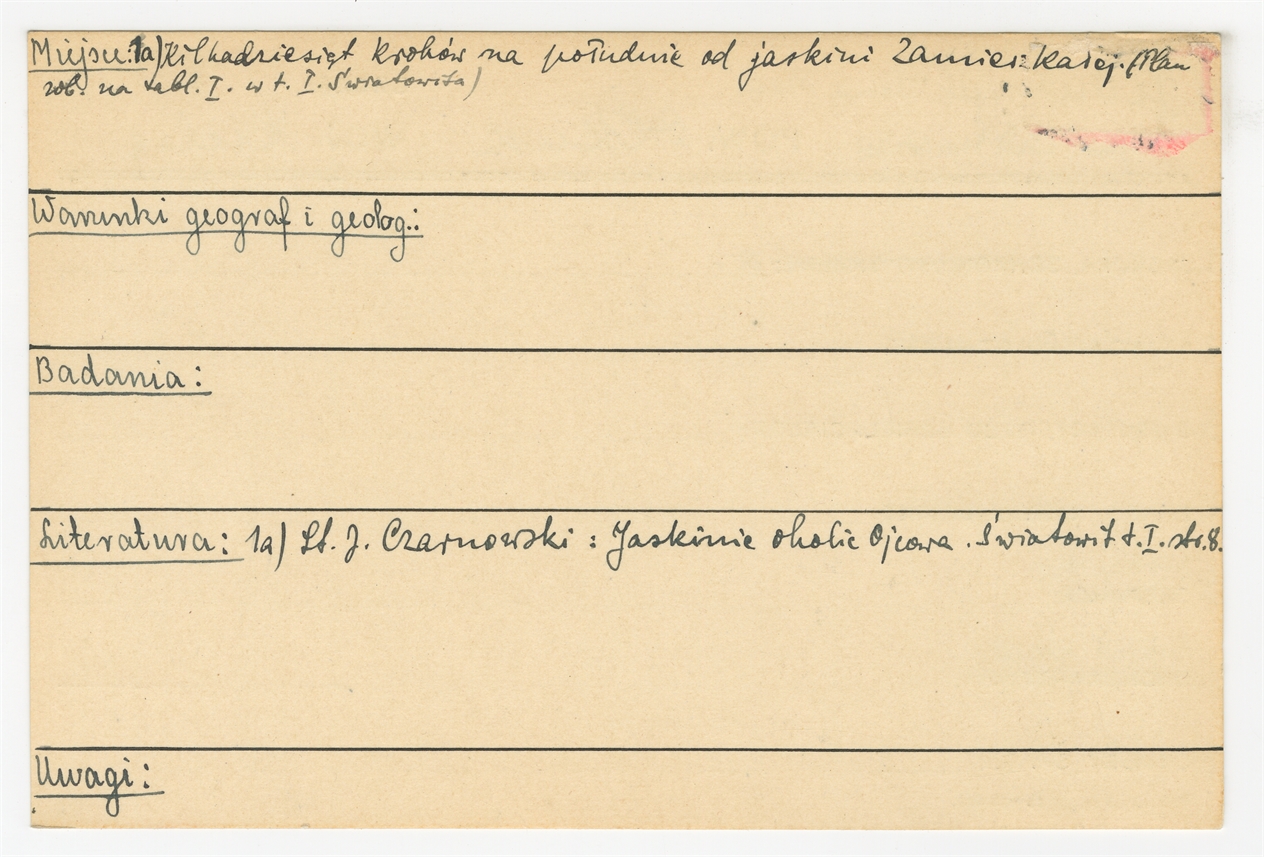 Miejsce: 1a) Kilkadziesiąt kroków na południe od jaskini Zamieszkałej. (Plan
zob. na tabl. I. w t. I. Światowita)
Warunki geograf i geolog.:
Badania:
Literatura: 1a) St. J. Czarnowski : Jaskinie okolic Ojcowa. Światowit t. I. str. 8.
Uwagi: